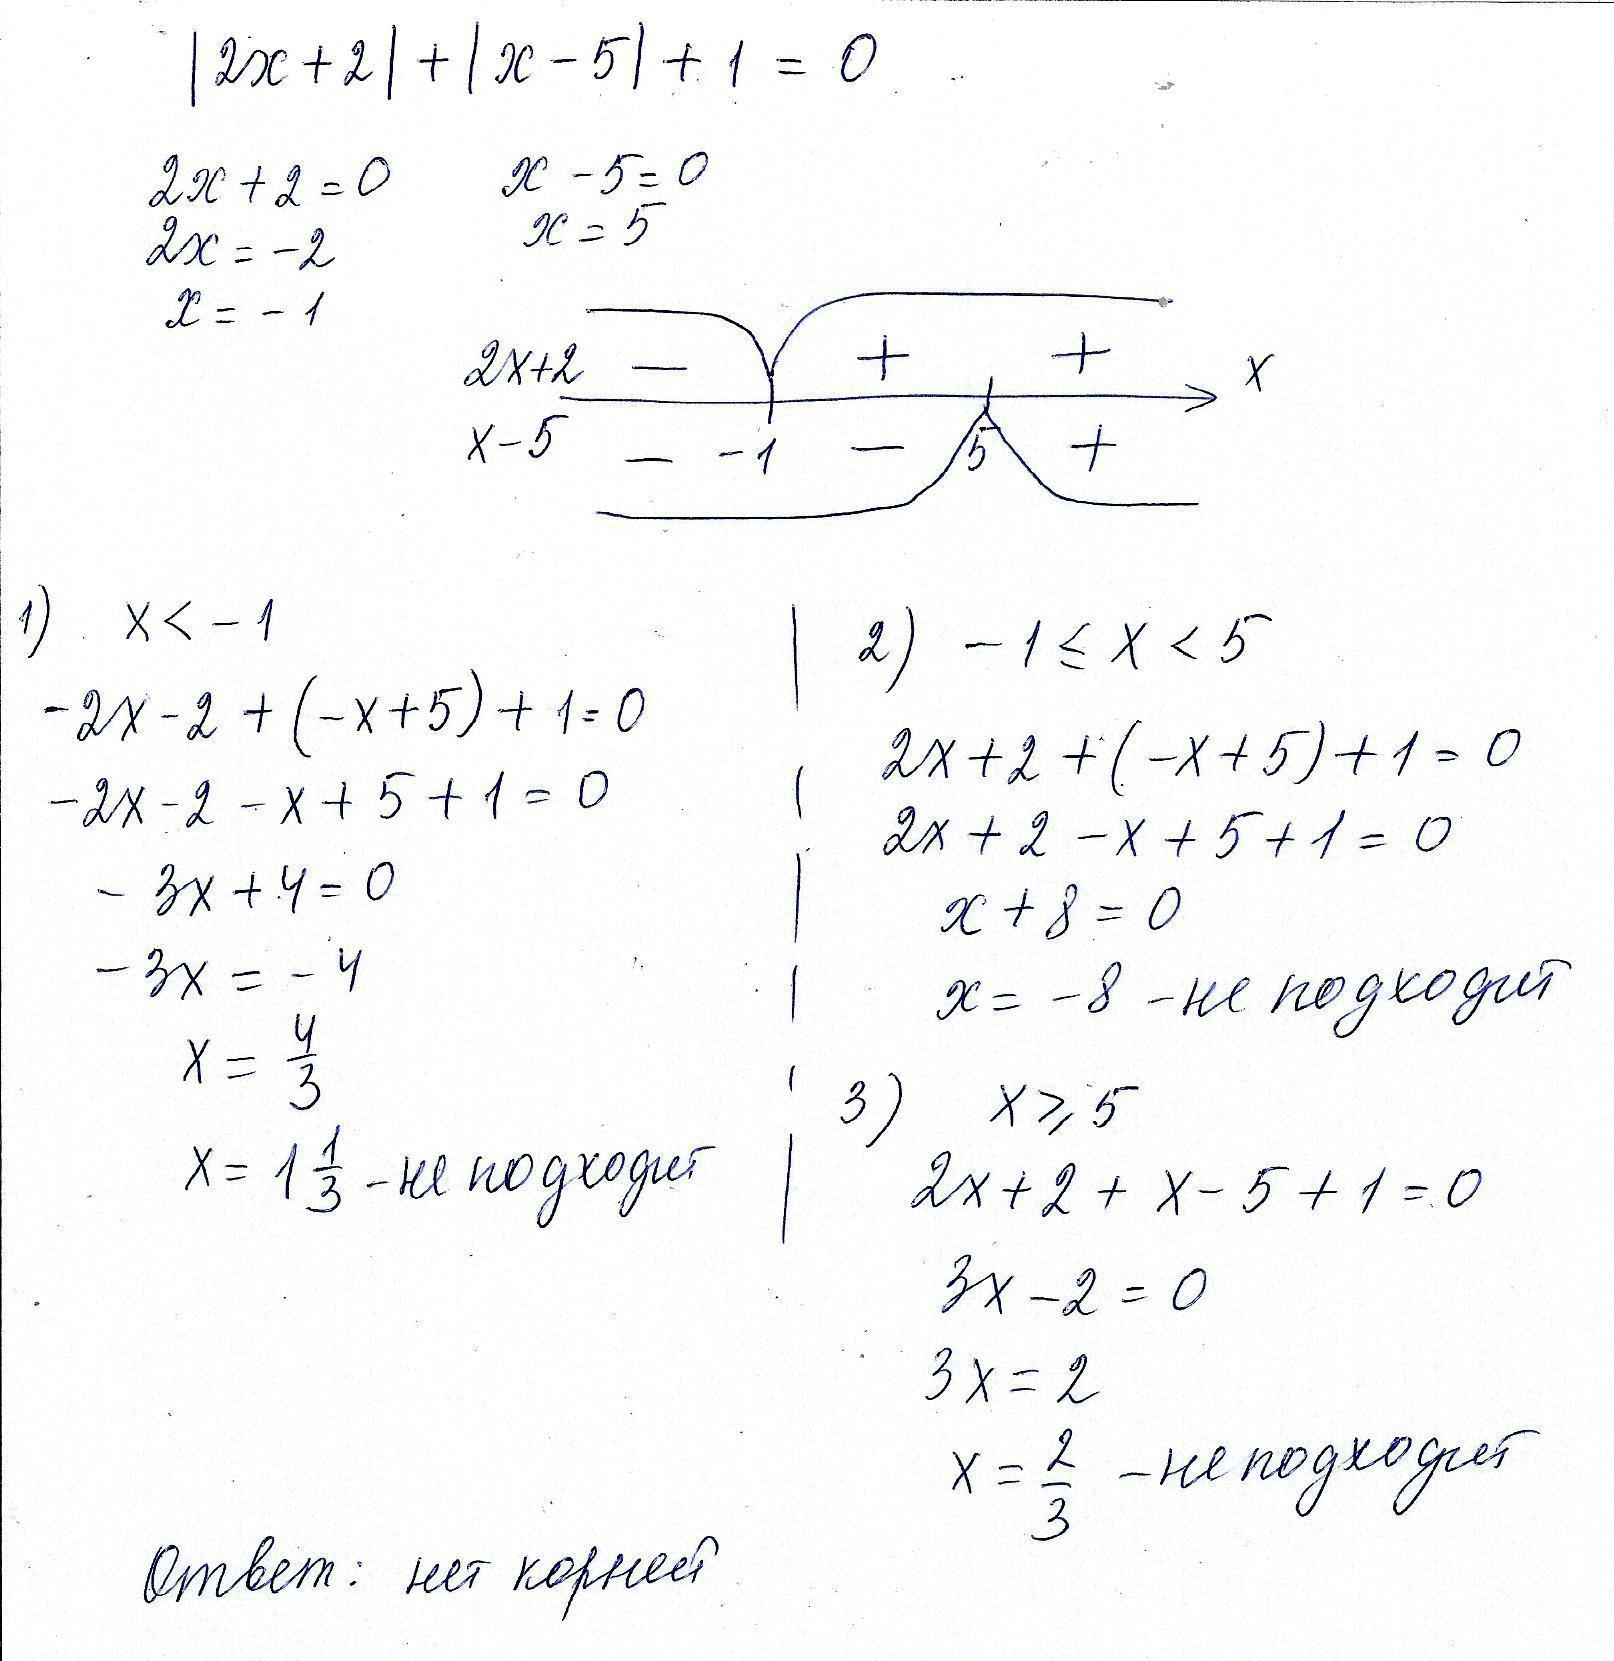 |2x+2|+|x-5|+1=0
2x+2=0
2x=-2
x=-1
x-5=0
x=5
2x+2 — + + x
x-5 — -1 — 5 +
1) x<-1
-2x-2+(-x+5)+1=0
-2x-2-x+5+1=0
-3x+4=0
-3x=-4
x=4/3
x=1 1/3 - не подходит
2) -1≤x<5
2x+2+(-x+5)+1=0
2x+2-x+5+1=0
x+8=0
x=-8 - не подходит
3) x≥5
2x+2+x-5+1=0
3x-2=0
3x=2
x=2/3 - не подходит
Ответ: нет корней